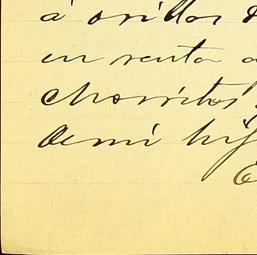 á orillas d
en renta a
chorritos,
de mi hij
E